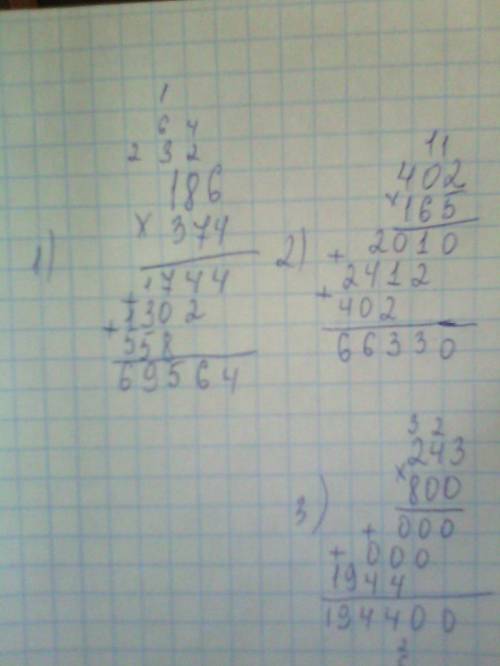 1)
1
6 4
2 3 2
186
× 374
1744
+ 1302
+ 558
69564
2)
11
402
× 165
+ 2010
+ 2412
402
66330
3)
3 2
243
× 800
+ 000
+ 000
1944
194400